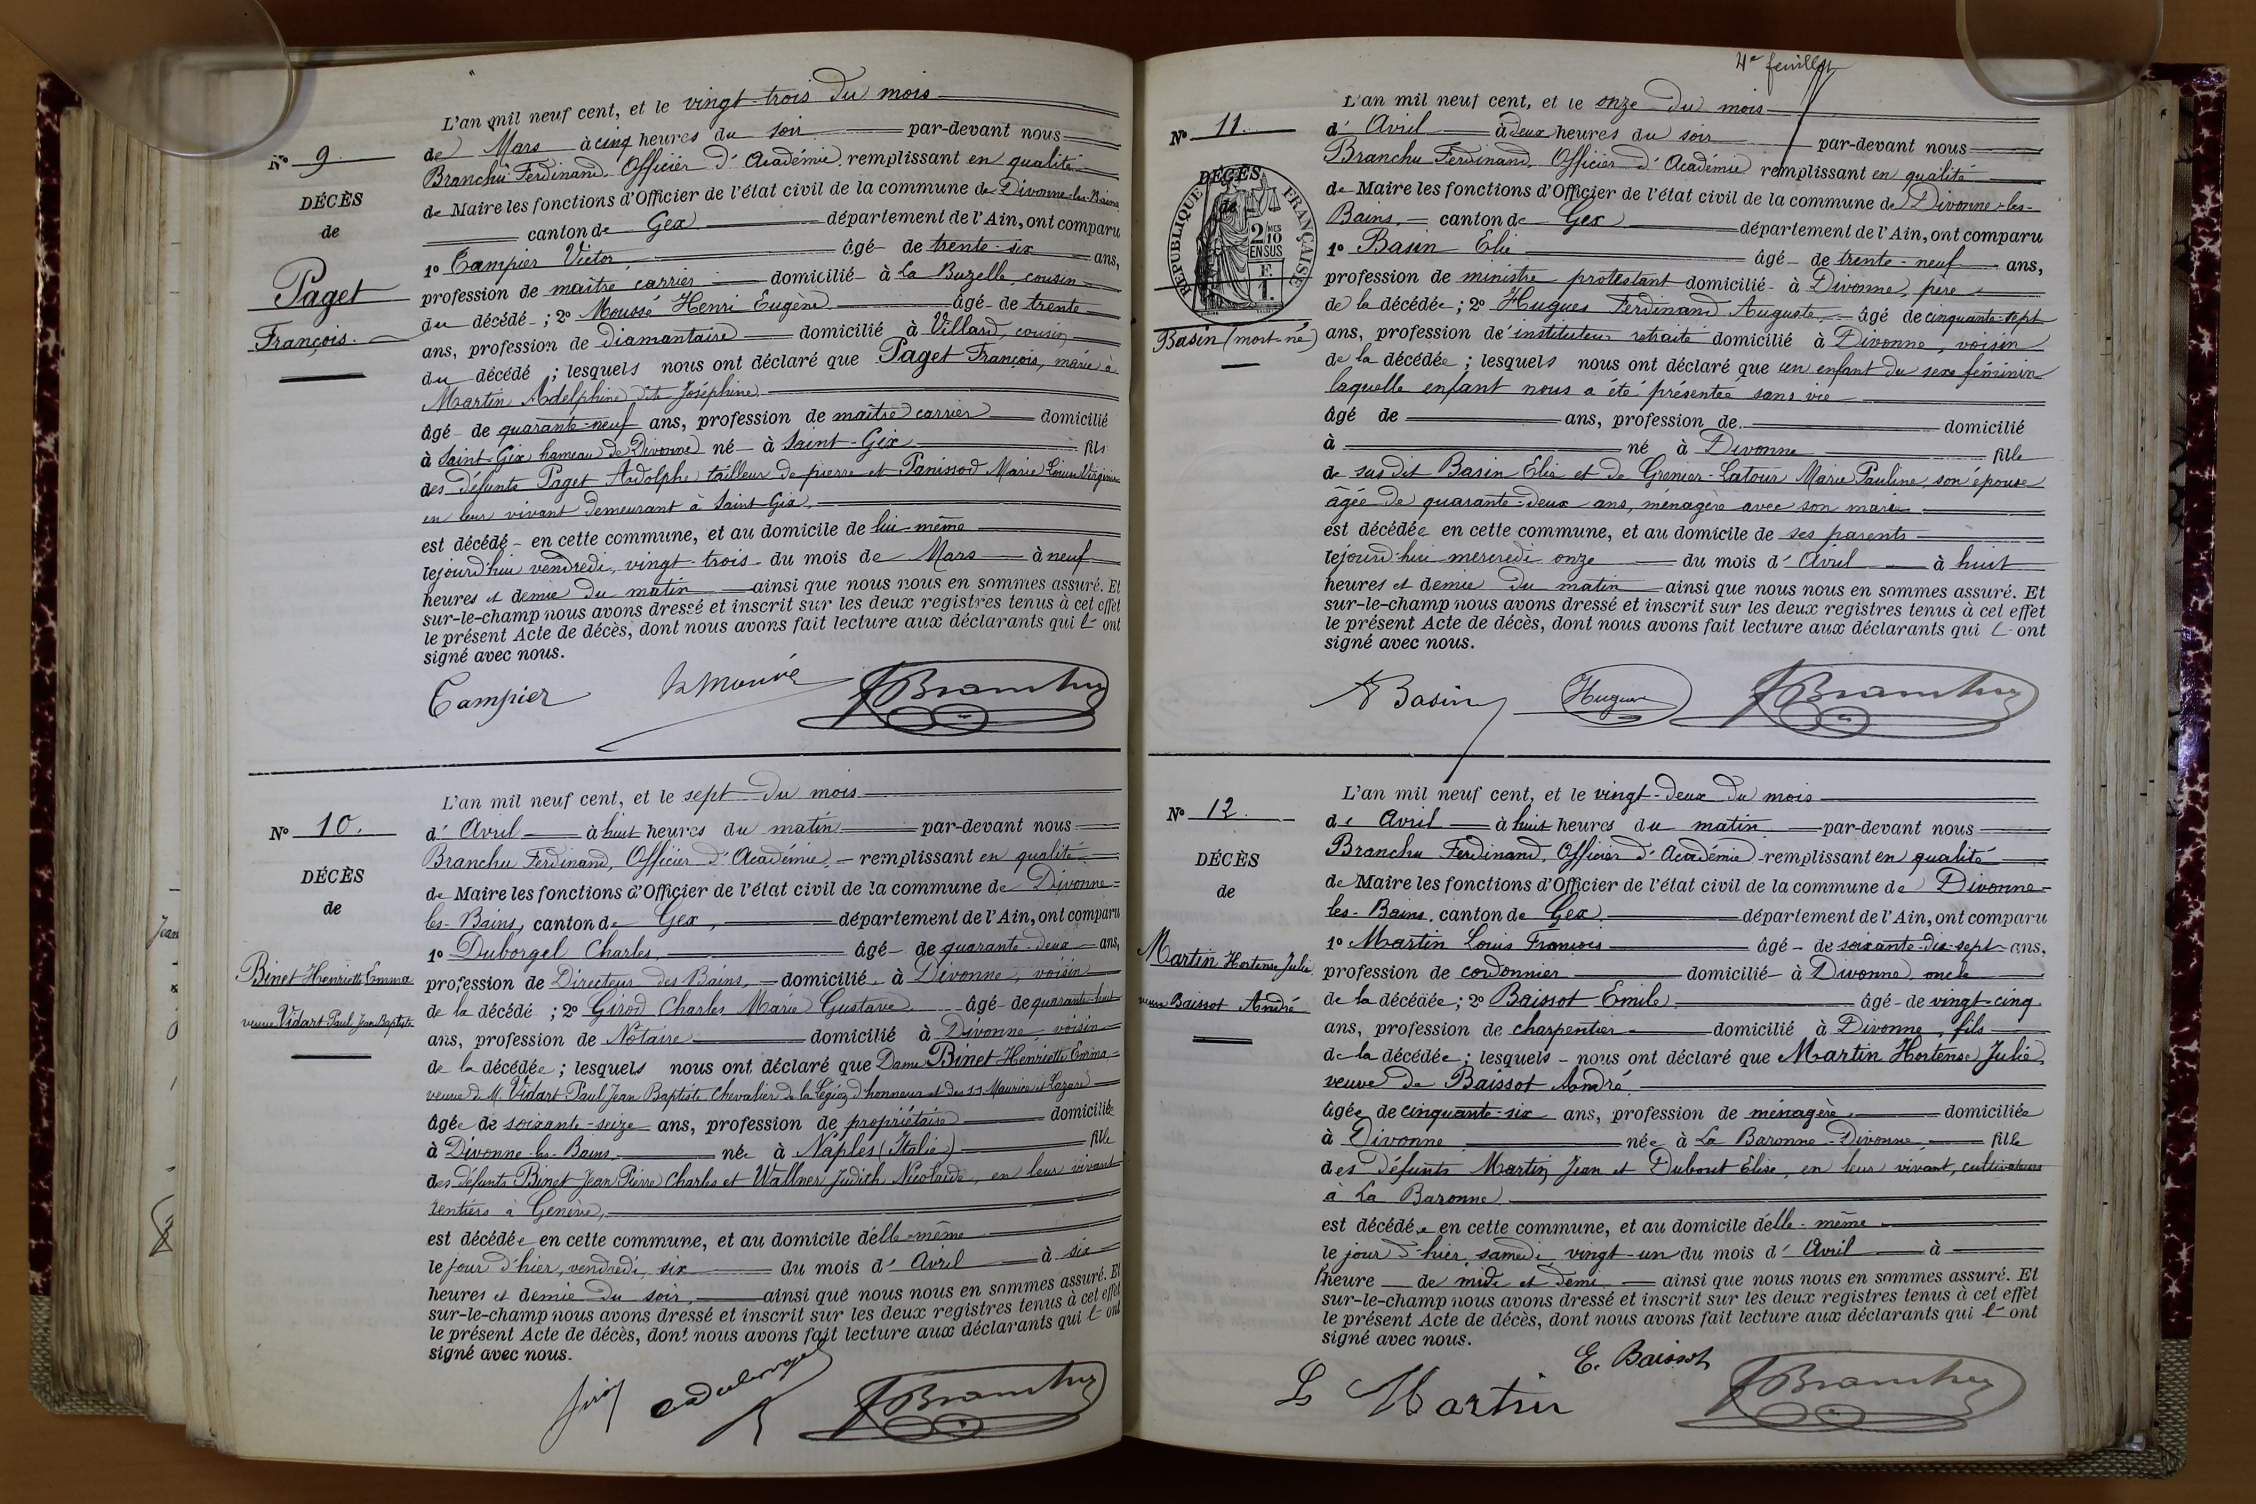 N° 9.
DÉCÈS
de
Paget
François.
L'an mil neuf cent, et le vingt-trois du mois
de Mars à cinq heures du soir par-devant nous
Branchu Ferdinand, Officier d'Académie remplissant en qualité
de Maire les fonctions d'Officier de l'état civil de la commune de Divonne-les-Bains
canton de Gex département de l'Ain, ont comparu
1° Campier Victor âgé de trente-six ans,
profession de maître carrier domicilié à la Buzelle, cousin
du décédé ; 2° Moussé Henri Eugène âgé de trente
ans, profession de diamantaire domicilié à Villard, cousin
du décédé ; lesquels nous ont déclaré que Paget François, marié à
Martin Adelphine dite Joséphine
âgé de quarante-neuf ans, profession de maître carrier domicilié
à Saint-Gix hameau de Divonne né à Saint-Gix fils
des défunts Paget Adolphe tailleur de pierre et Panissod Marie Louise Virginie
en leur vivant demeurant à Saint-Gix,
est décédé en cette commune, et au domicile de lui-même
lejourd'hui vendredi, vingt-trois du mois de Mars à neuf
heures et demie du matin ainsi que nous nous en sommes assuré. Et
sur-le-champ nous avons dressé et inscrit sur les deux registres tenus à cet effet
le présent Acte de décès, dont nous avons fait lecture aux déclarants qui l' ont
signé avec nous.
Campier Branchu
N° 10.
DÉCÈS
de
Binet Henriette Emma
veuve Vidart Paul Jean Baptiste
L'an mil neuf cent, et le sept du mois
d'Avril à huit heures du matin par-devant nous
Branchu Ferdinand, Officier d'Académie remplissant en qualité
de Maire les fonctions d'Officier de l'état civil de la commune de Divonne-
les-Bains, canton de Gex, département de l'Ain, ont comparu
1° Duborgel Charles, âgé de quarante-deux ans,
profession de Directeur des Bains, domicilié à Divonne, voisin
de la décédé ; 2° Girod Charles Marie Gustave âgé de quarante-huit
ans, profession de Notaire domicilié à Divonne voisin
de la décédée ; lesquels nous ont déclaré que Dame Binet Henriette Emma
veuve de M. Vidart Paul Jean Baptiste Chevalier de la Légion d'honneur et des S.S. Maurice et Lazare
âgée de soixante-seize ans, profession de propriétaire domiciliée
à Divonne-les-Bains née à Naples (Italie) fille
des défunts Binet Jean Pierre Charles et Wallner Judith Nicolaïde, en leur vivant
rentiers à Genève,
est décédée en cette commune, et au domicile d'elle-même
le jour d'hier, vendredi, six du mois d'Avril à six
heures et demie du soir, ainsi que nous nous en sommes assuré. Et
sur-le-champ nous avons dressé et inscrit sur les deux registres tenus à cet effet
le présent Acte de décès, dont nous avons fait lecture aux déclarants qui l' ont
signé avec nous.
Girod C Duborgel Branchu
4e feuillet
N° 11.
DÉCÈS
de
RÉPUBLIQUE FRANÇAISE
2/10 MES
EN SUS
F.
1.
Basin (mort-né)
L'an mil neuf cent, et le onze du mois
d'Avril à deux heures du soir par-devant nous
Branchu Ferdinand, Officier d'Académie remplissant en qualité
de Maire les fonctions d'Officier de l'état civil de la commune de Divonne-les-
Bains, canton de Gex département de l'Ain, ont comparu
1° Basin Elie âgé de trente-neuf ans,
profession de ministre protestant domicilié à Divonne, père
de la décédée ; 2° Hugues Ferdinand Auguste âgé de cinquante-sept
ans, profession de instituteur retraité domicilié à Divonne, voisin
de la décédée ; lesquels nous ont déclaré que un enfant du sexe féminin
laquelle enfant nous a été présentée sans vie
âgé de ans, profession de domicilié
à né à Divonne fille
de susdit Basin Elie et de Grenier-Latour Marie Pauline son épouse
âgée de quarante-deux ans, ménagère avec son mari
est décédée en cette commune, et au domicile de ses parents
lejourd'hui mercredi onze du mois d'Avril à huit
heures et demie du matin ainsi que nous nous en sommes assuré. Et
sur-le-champ nous avons dressé et inscrit sur les deux registres tenus à cet effet
le présent Acte de décès, dont nous avons fait lecture aux déclarants qui l' ont
signé avec nous.
Basin Hugues Branchu
N° 12.
DÉCÈS
de
Martin Hortense Julie
veuve Baissot André
L'an mil neuf cent, et le vingt-deux du mois
de Avril à huit heures du matin par-devant nous
Branchu Ferdinand, Officier d'Académie remplissant en qualité
de Maire les fonctions d'Officier de l'état civil de la commune de Divonne-
les-Bains, canton de Gex département de l'Ain, ont comparu
1° Martin Louis François âgé de soixante-dix-sept ans,
profession de cordonnier domicilié à Divonne oncle
de la décédée ; 2° Baissot Emile âgé de vingt-cinq
ans, profession de charpentier domicilié à Divonne, fils
de la décédée ; lesquels nous ont déclaré que Martin Hortense Julie,
veuve de Baissot André
âgée de cinquante-six ans, profession de ménagère, domiciliée
à Divonne née à La Baronne-Divonne fille
des défunts Martin Jean et Dubout Elise, en leur vivant, cultivateurs
à La Baronne
est décédée en cette commune, et au domicile d'elle-même
le jour d'hier, samedi, vingt-un du mois d'Avril à
l'heure de midi et demi ainsi que nous nous en sommes assuré. Et
sur-le-champ nous avons dressé et inscrit sur les deux registres tenus à cet effet
le présent Acte de décès, dont nous avons fait lecture aux déclarants qui l' ont
signé avec nous.
E. Baissot
L Martin Branchu
Jean